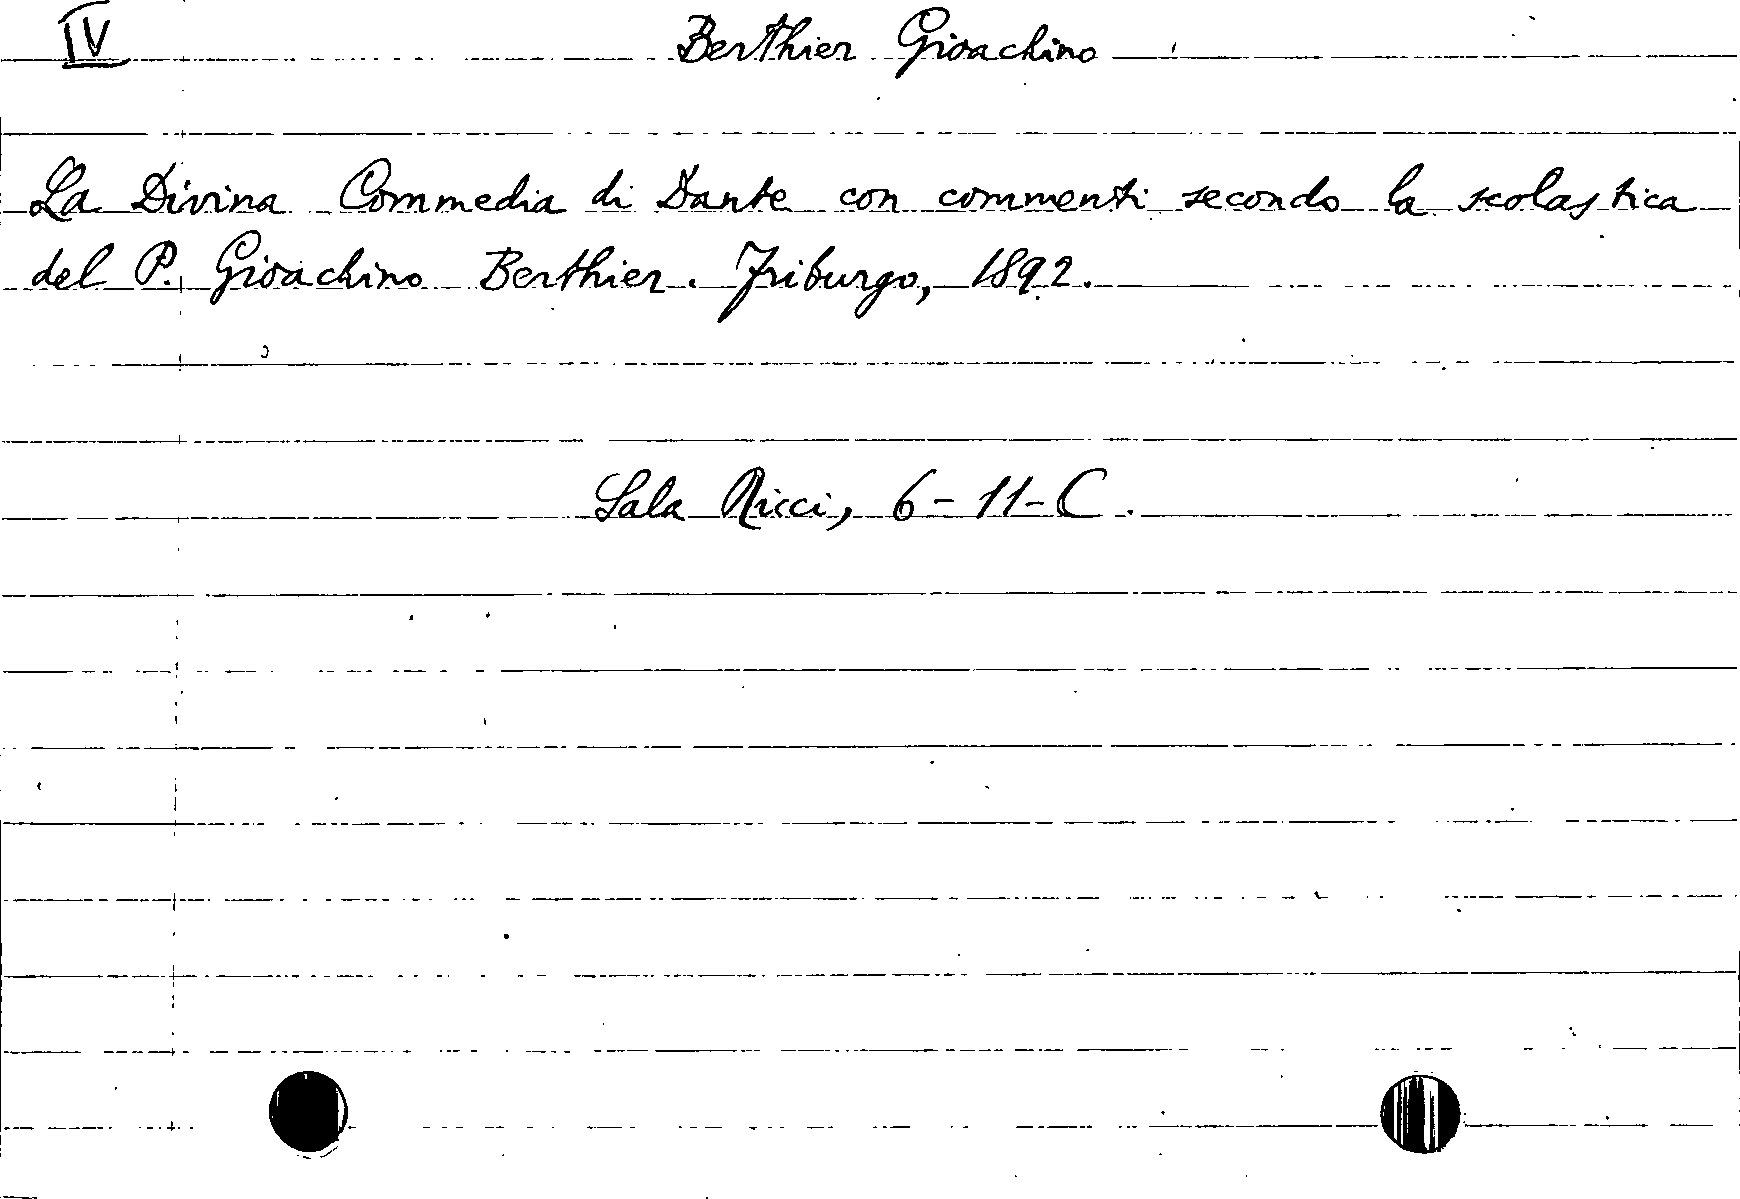 IV
Berthier Gioachino
La Divina Commedia di Dante con commenti secondo la scolastica
del P. Gioachino Berthier. Friburgo, 1892.
Sala Ricci, 6-11-C.